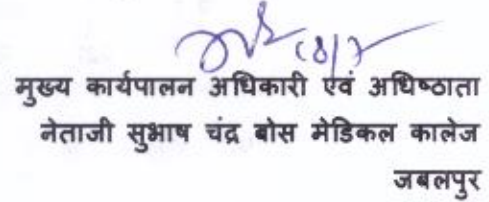 18/7
मुख्य कार्यपालन अधिकारी एवं अधिष्ठाता
नेताजी सुभाष चंद्र बोस मेडिकल कालेज
जबलपुर